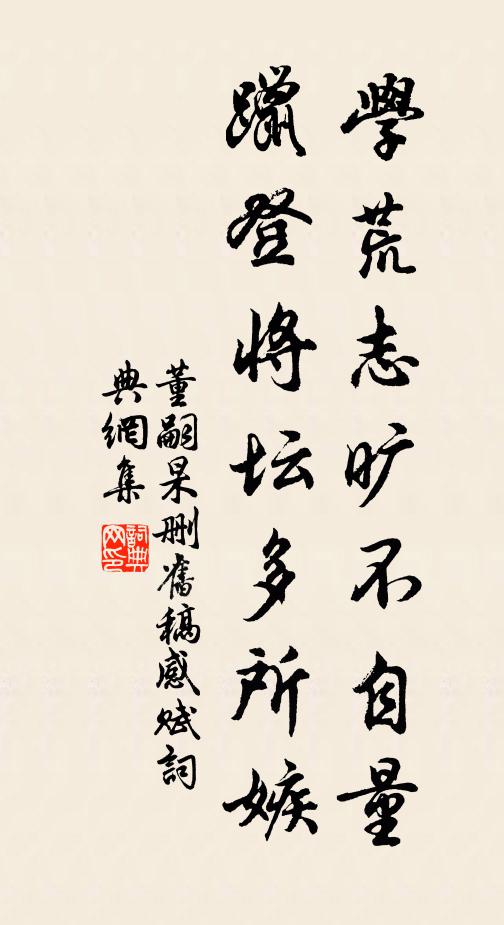 學荒志旷不自量
躐登将坛多所嫉
董嗣杲删舊稿感赋詞
典網集
詞典網印